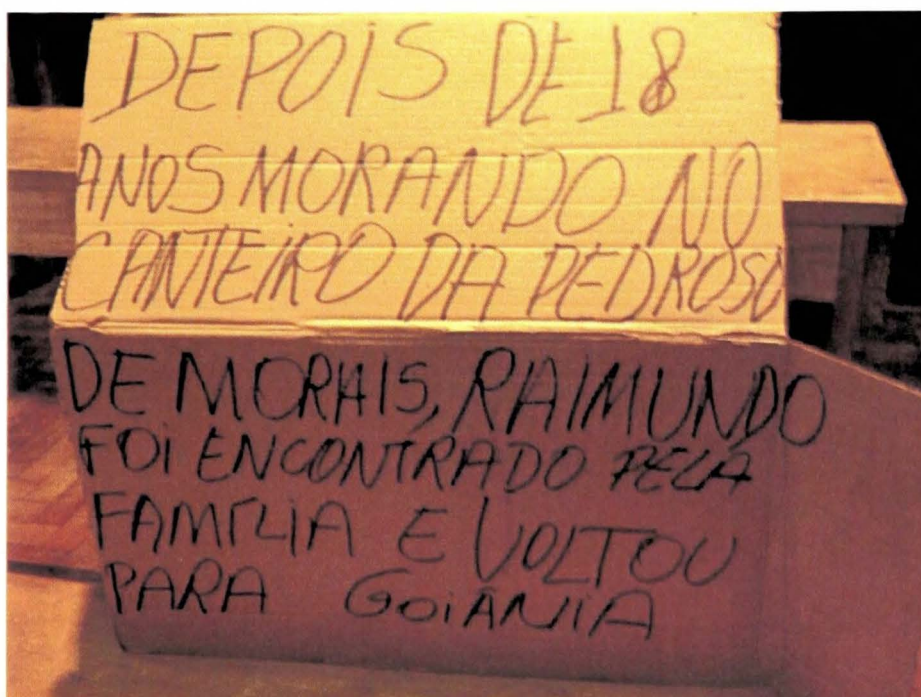 DEPOIS DE 18
ANOS MORANDO NO
CANTEIRO DA PEDROSO
DE MORAIS, RAIMUNDO
FOI ENCONTRADO PELA
FAMÍLIA E VOLTOU
PARA GOIÂNIA